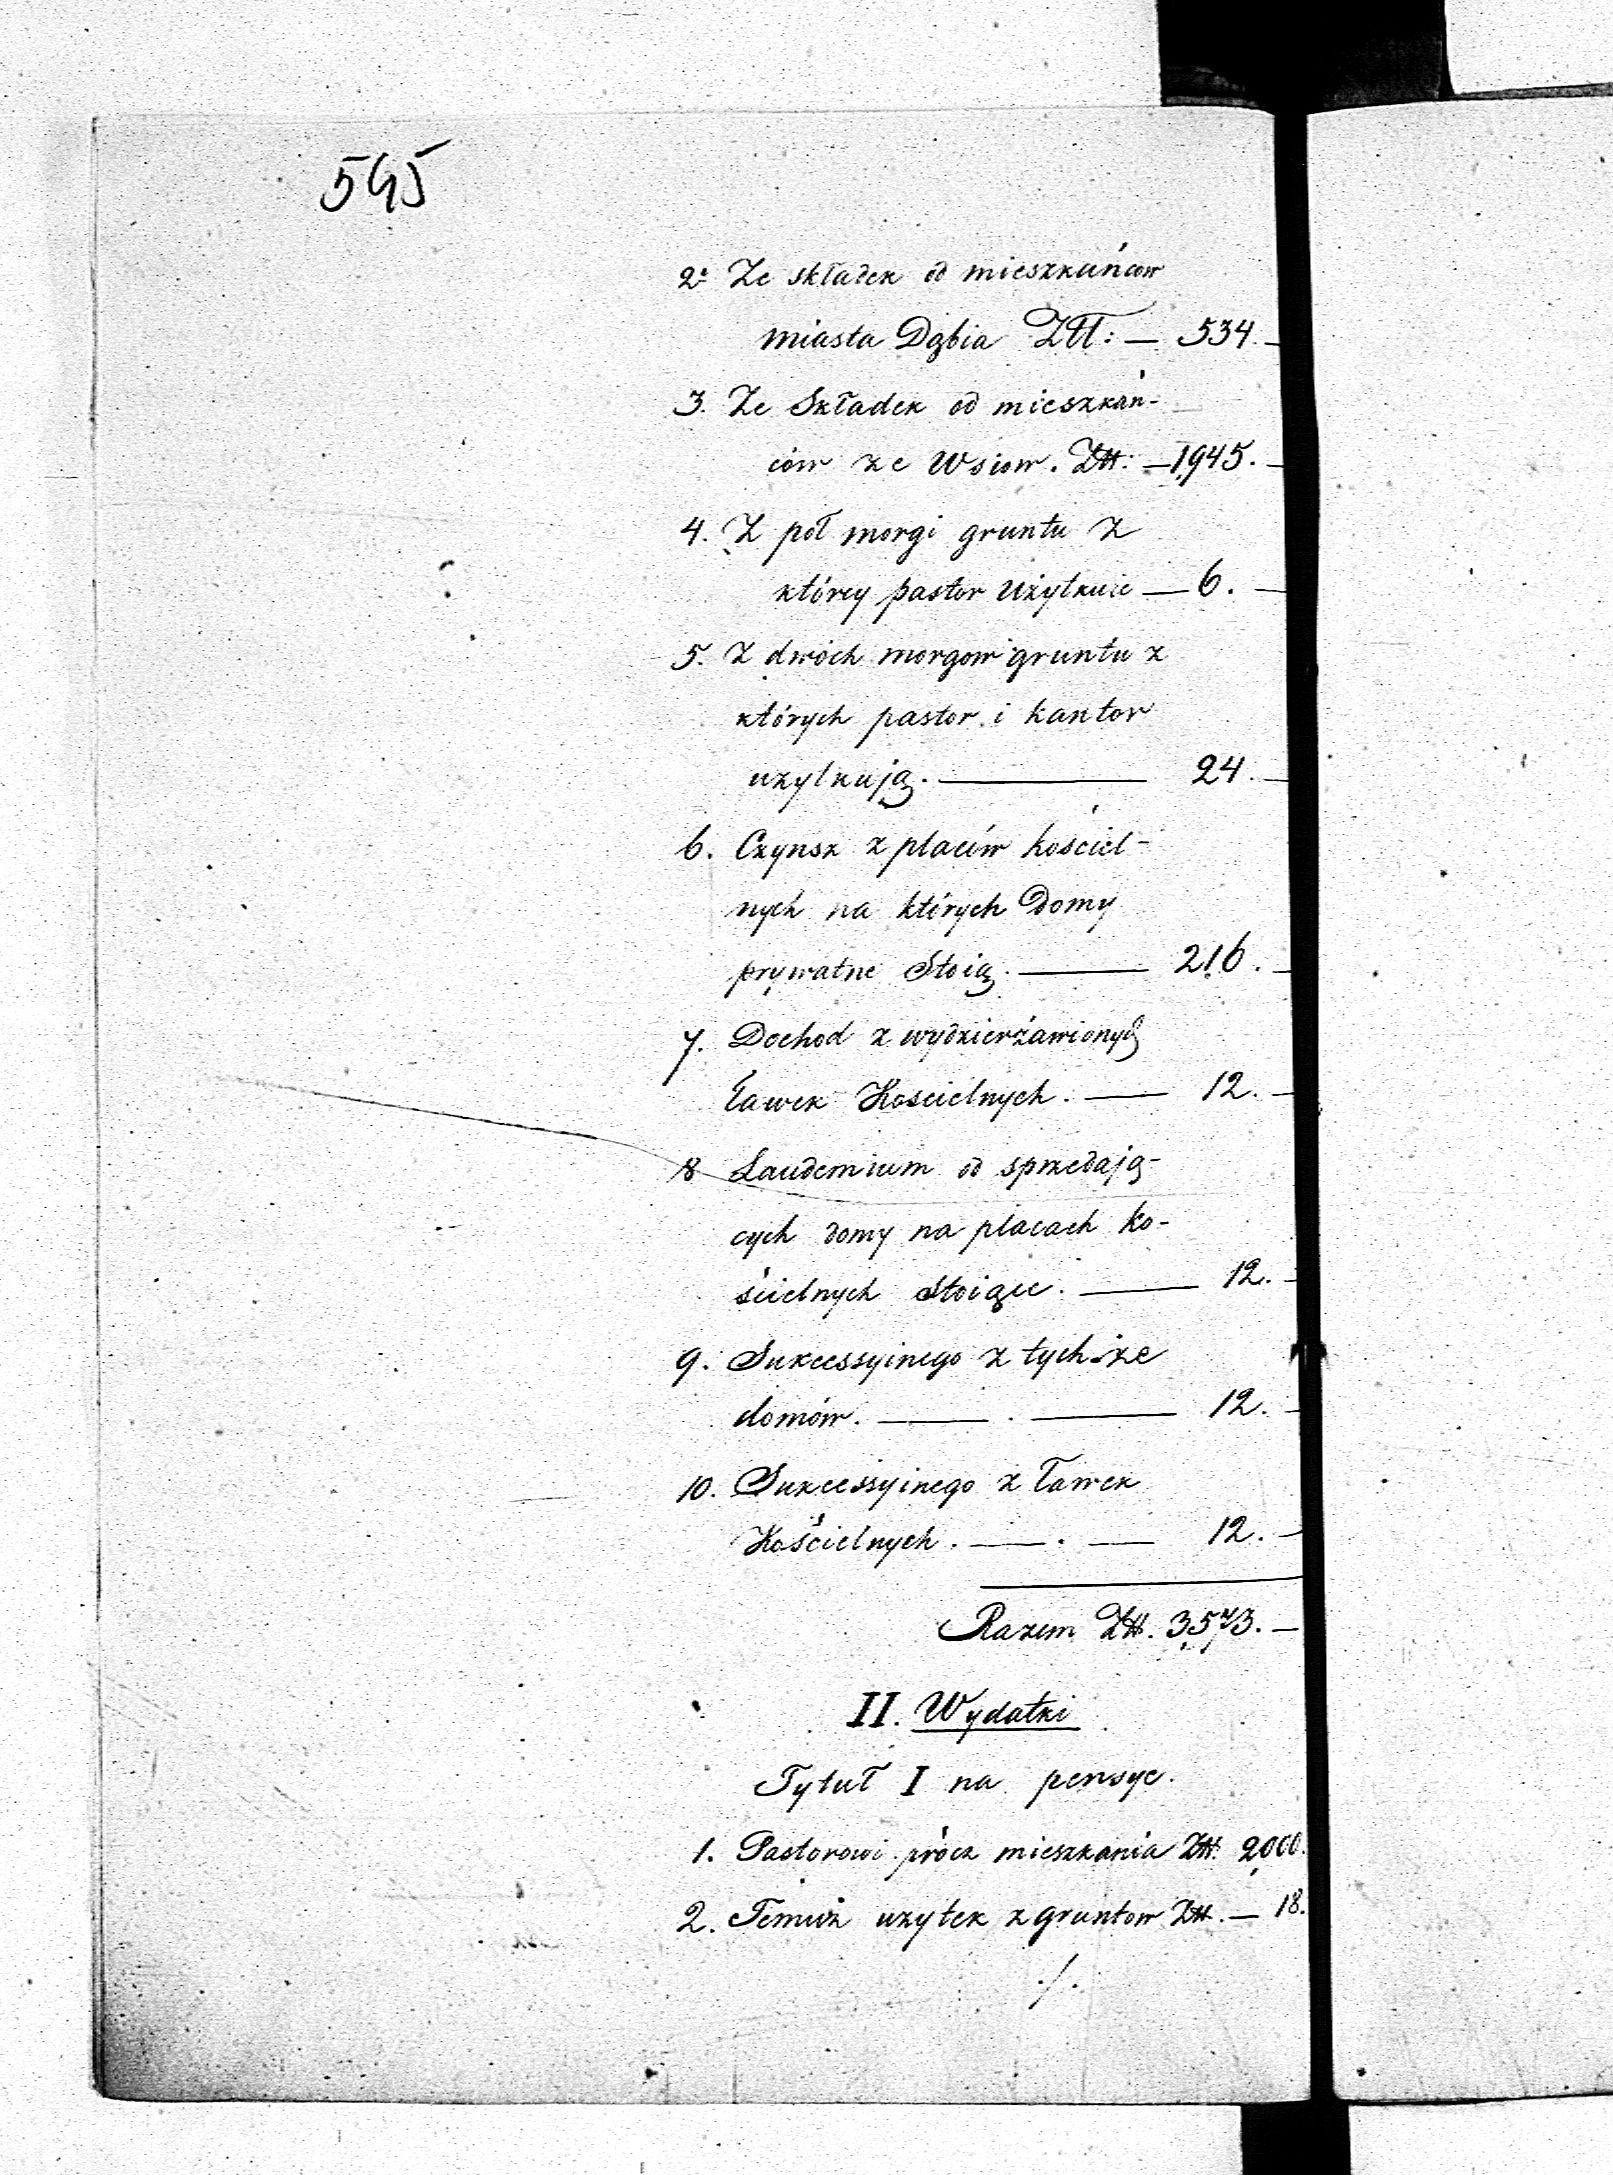 545
2. Ze składek od mieszkańcow
miasta Dąbia Złt: — 534. —
3. Ze Składek od mieszkań-
ców ze Wsiow. Złt: — 1,945. —
4. Z poł morgi gruntu z
którey pastor użytkuie — 6. —
5. Z dwóch morgow gruntu z
których pastor i kantor
uzytkują. — 24. —
6. Czynsz z placów kościel-
nych na których Domy
prywatne Stoią. — 216. —
7. Dochod z wydzierżawionych
ławek Koscielnych. — 12. —
8 Laudemium od sprzedają-
cych domy na placach ko-
ścielnych Stoiące. — 12. —
9. Sukcessyinego z tychże
domów. — . — 12. —
10. Sukcessyinego z ławek
Kościelnych. — . — 12. —
Razem Złt. 3,573. —
II. Wydatki
Tytuł I na pensye.
1. Pastorowi prócz mieszkania Złt. 2,000.
2. Temuż uzytek z gruntow Złt. — 18.
./.